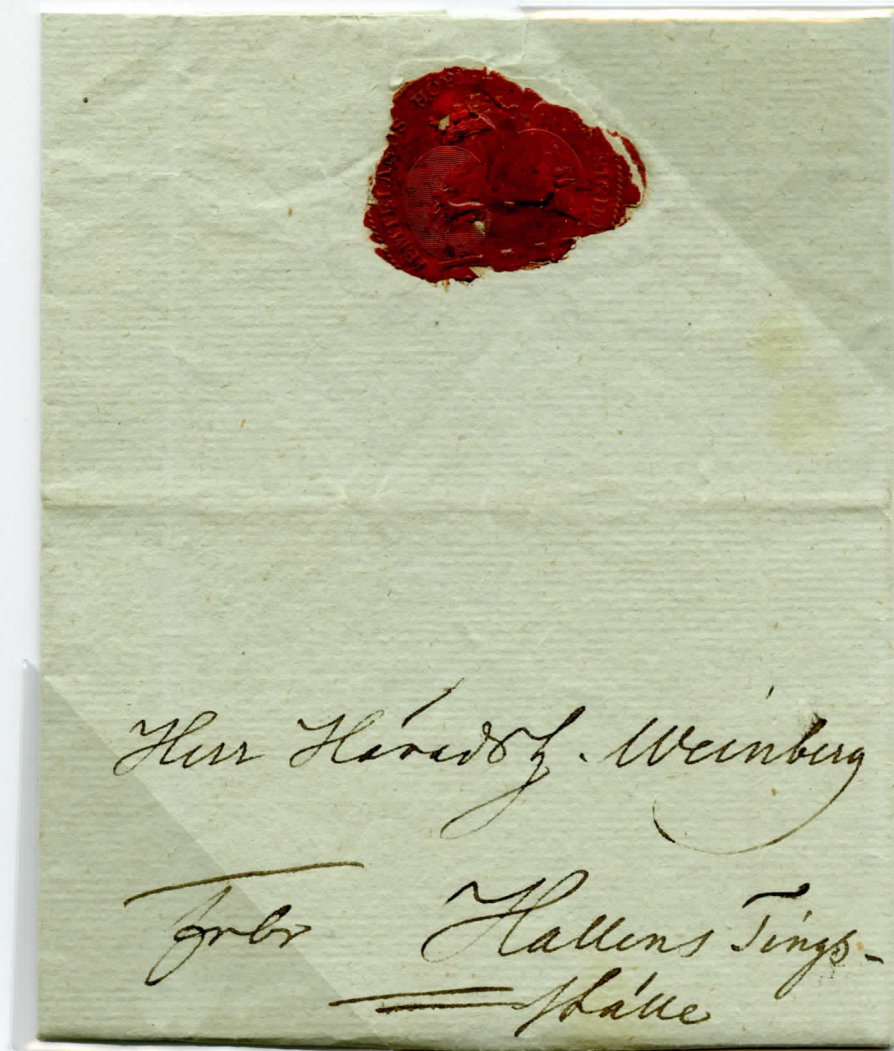 Herr Häradsh. Weinberg
frbr Hallens Tings-
ställe